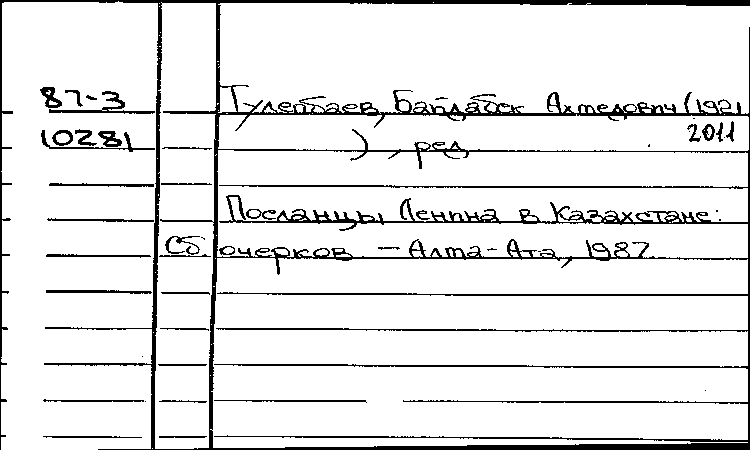 87-3 Тулепбаев, Байдабек Ахмедович (1921
10281 2011
), ред.
Посланцы Ленина в Казахстане:
Сб. очерков. — Алма-Ата, 1987.